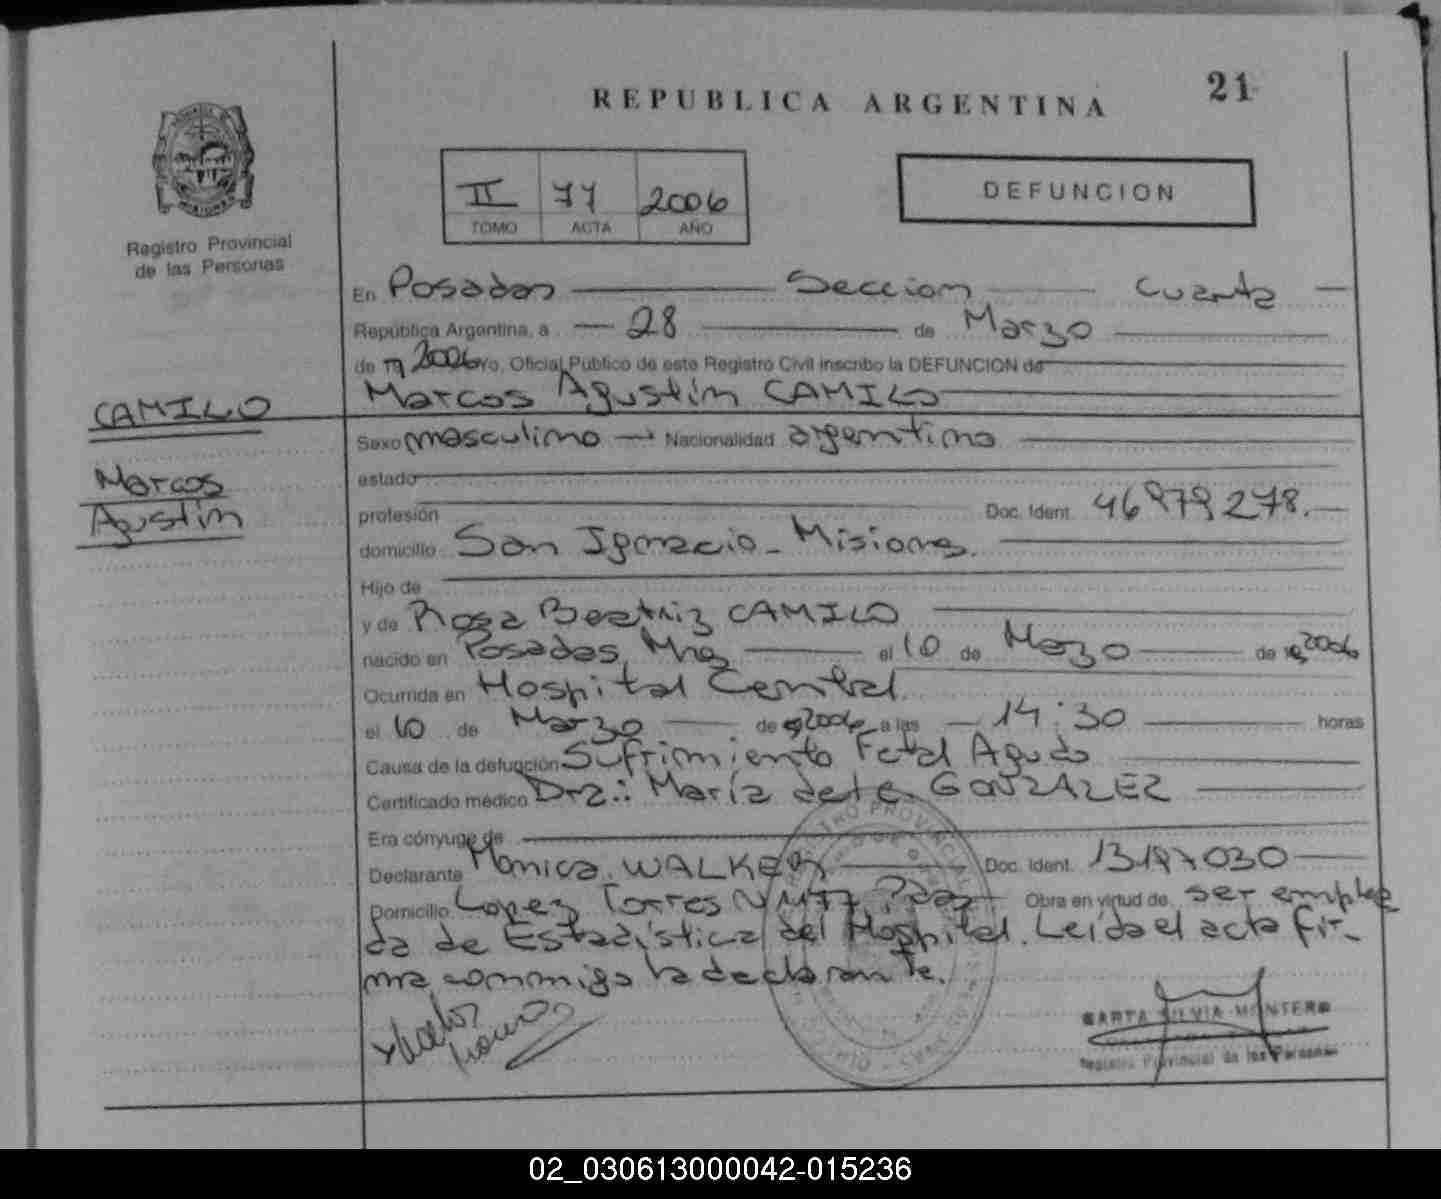 21
REPUBLICA ARGENTINA
II 77 2006
TOMO ACTA AÑO
DEFUNCION
Registro Provincial
de las Personas
En Posadas Seccion Cuarta
República Argentina, a 28 de Marzo
de 19 2006 Yo, Oficial Público de este Registro Civil inscribo la DEFUNCION de
Marcos Agustín CAMILO
CAMILO
Marcos
Agustín
Sexo masculino Nacionalidad argentino
estado
profesión Doc. Ident. 46979278.
domicilio San Ignacio - Misiones.
Hijo de
y de Rosa Beatriz CAMILO
nacido en Posadas, Mnes el 10 de Marzo de 2006
Ocurrida en Hospital Central
el 10 de Marzo de 2006 a las 14:30 horas
Causa de la defunción Sufrimiento Fetal Agudo
Certificado médico Dra: María del C. GONZALEZ
Era cónyuge de
Declarante Monica WALKER Doc. Ident. 13197030
Domicilio Lopez Torres Nº 1177 Pdas Obra en virtud de ser emplea
da de Estadística del Hospital. Leída el acta fir-
ma conmigo la declarante.
MARTA SILVIA MONTERO
Registro Provincial de las Personas
02_030613000042-015236